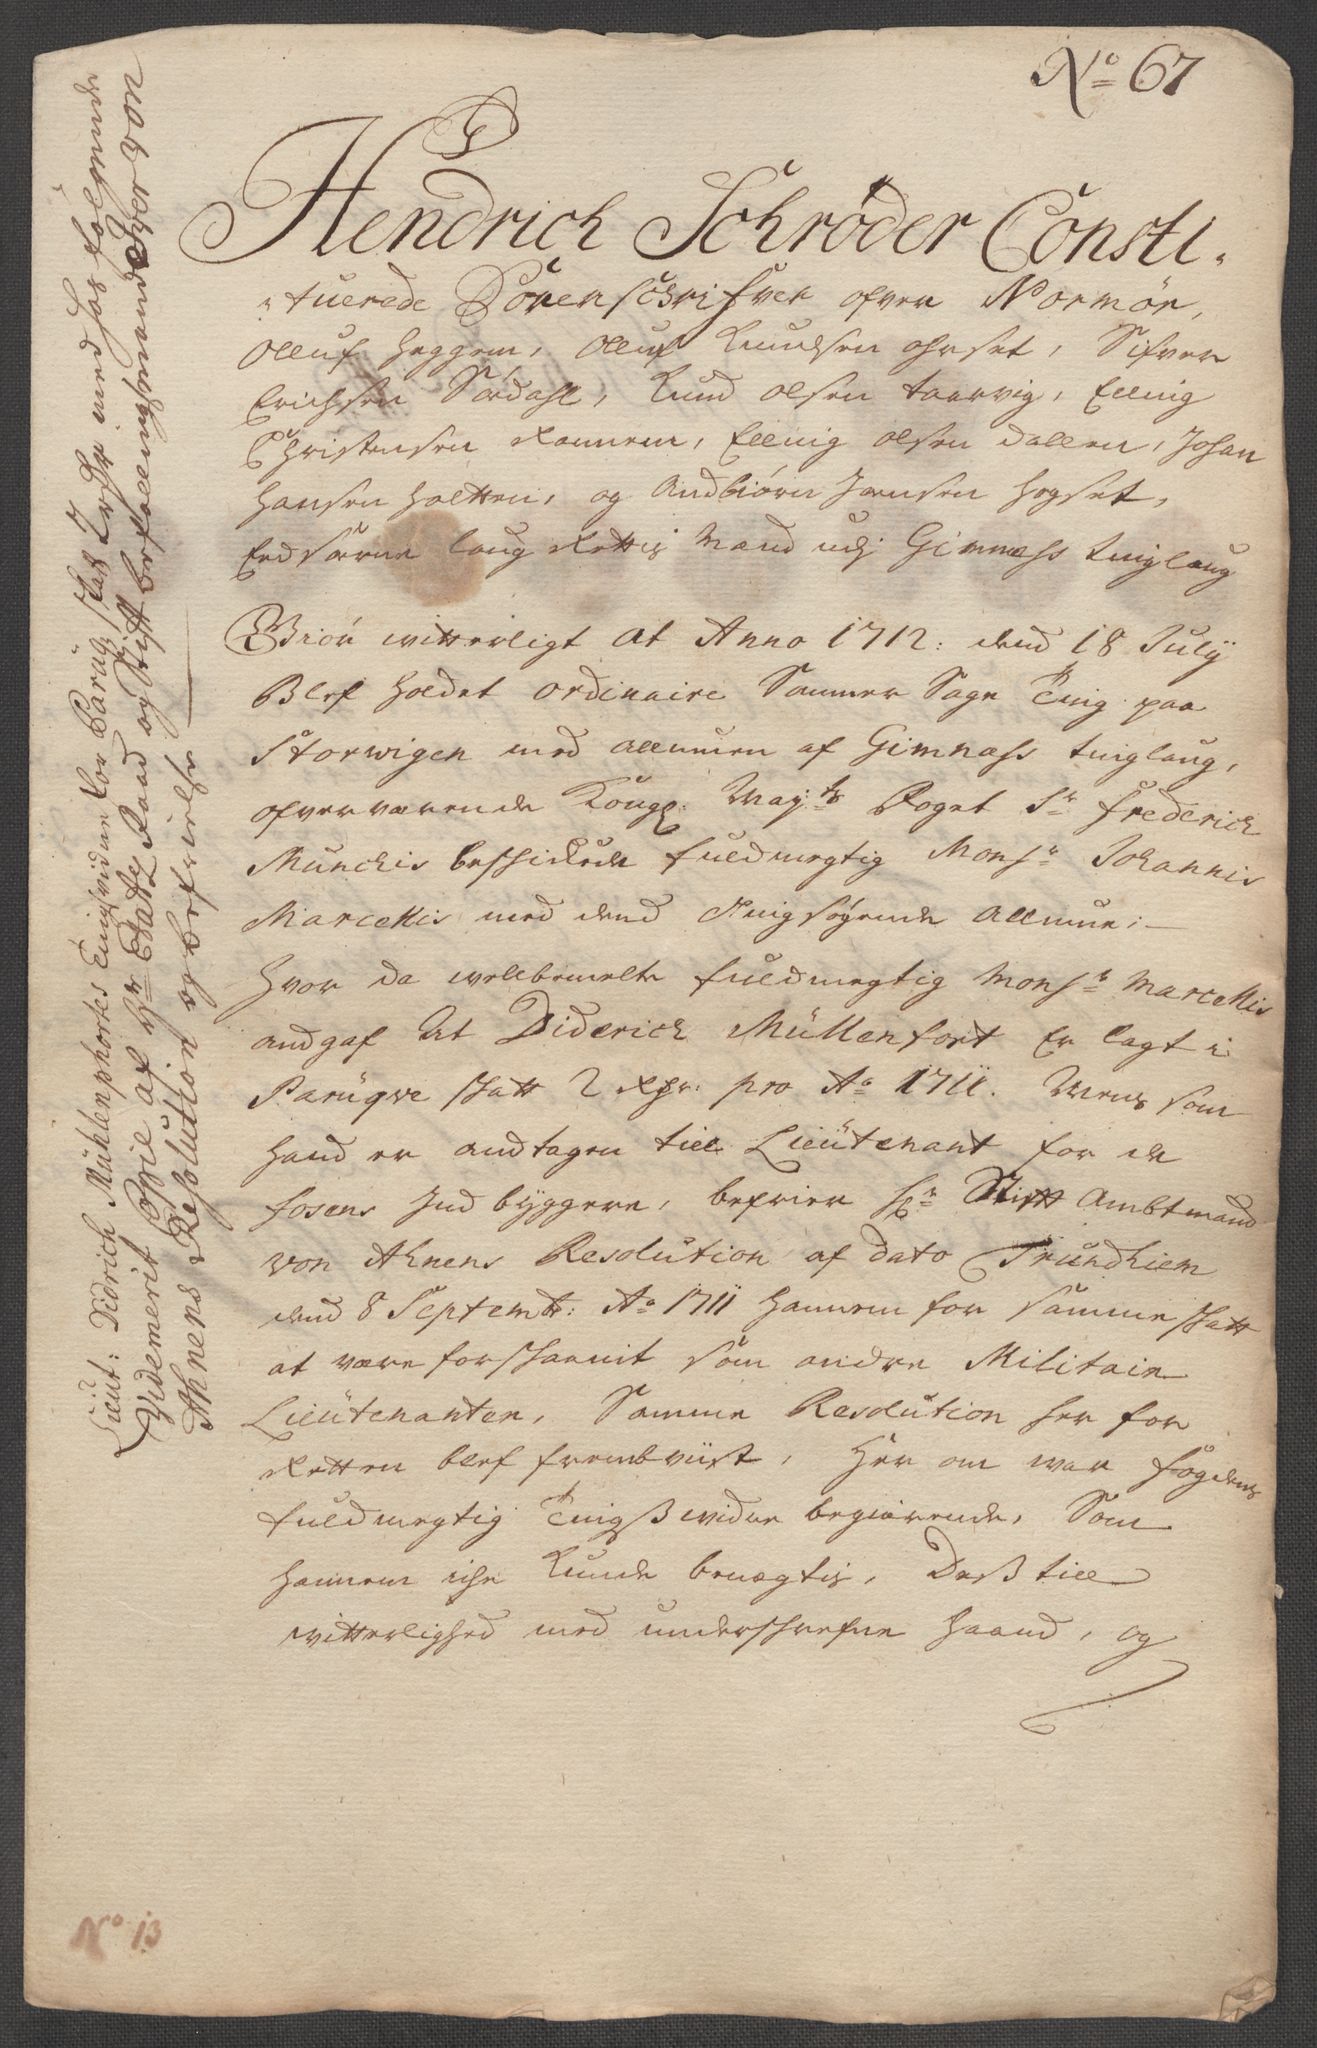 No 67
Hendrich Schrøder Consti-
-tuerede Sorenschrifver ofver Normør,
Olluf Heggem, Olluf Knudsen ohrset, Sifver
Erichsen Sørdahl, Knud Olsen taarvig, Elling
Christensen Rannem, Elling Olsen dallen, Johan
Hansen Holtten, og Andbiørn Jonsen Hogset,
Eedsorne laug Rettis Mænd udj Gimnæss tinglaug
Giør witterligt at Anno 1712: dend 18 Julij
Blef holdet ordinaire Sommer Sage Ting paa
Storwigen med allmuen af Gimnæss tinglaug,
ofverværende Kongl: Maj:ts Foget Sr Frederich
Munchis beschickede fuldmegtig Monsr Johannis
Marcellis med dend tingsøgende Allmue;
Hvor da welbemelte fuldmegtig Monsr Marcellis
andgaf At Diderich Müllenfort Er lagt i
Parüqve schatt 2 Rdr: pro Ao 1711. Mens som
hand er andtagen till Lieütenant for de
fosens Indbyggere, befrier Hr Stifft Ambtmand
von Ahnens Resolution af dato Trundhiem
dend 8 Septembr: Ao 1711 hannem for samme schatt
at være forschaanit som andre Militaire
Lieütenanter, Samme Resolution her for
Retten blef frembviist, Her om war fogdens
fuldmegtig Tingsswidne begierende, Som
hannem iche Kunde benægtis, Dess till
witterlighed med underschrefne Haand, og
Lieut: Didrich Mühlenphortes Tingsvidne for Paruq skat Ao 1711 med hos følgende
Videmerit Copie af Hr Etatz Raad og Stiftbefallingsmand Her von
Ahnens Resolution og befrielse
No 13